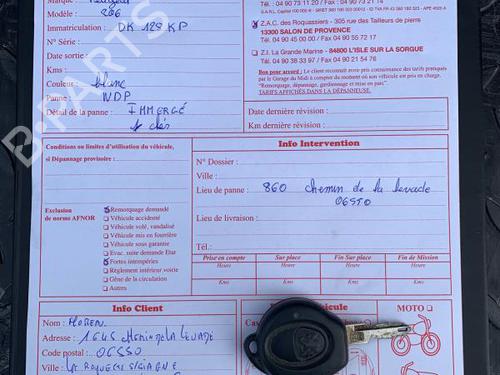 Marque :
Modèle : 206
Immatriculation : DK 129 KP
N° Série :
Date sortie :
Kms :
Couleur : blanc
Panne : NDP
Détail de la panne : IMMERGÉ
Tél. 04 90 73 11 20 / Fax 04 90 73 21 14
Z.A.C. des Roquassiers - 305 rue des Tailleurs de pierre
13300 SALON DE PROVENCE
Tél. 04 90 45 00 00 / Fax 04 90 55 72 17
Z.I. La Grande Marine - 84800 L'ISLE SUR LA SORGUE
Tél. 04 90 38 33 97 / Fax 04 90 21 54 76
Bon pour accord : le client reconnaît avoir pris connaissance des tarifs pratiqués
par le Garage du Midi à compter du moment où son véhicule est pris en charge.
"Remorquage, dépannage, gardiennage et prise en parc"
TARIFS AFFICHÉS DANS LA DÉPANNEUSE.
Date dernière révision :
Km dernière révision :
Conditions ou limites d'utilisation du véhicule,
si Dépannage provisoire :
Info Intervention
N° Dossier :
Ville :
Lieu de panne : 860 chemin de la levade
06550
Lieu de livraison :
Tél.:
Exclusion
de norme AFNOR
Remorquage demandé
Véhicule accidenté
Véhicule volé, vandalisé
Véhicule mis en fourrière
Véhicule sous garantie
Evac. suite demande Etat
Fortes intempéries
Règlement intérieur voirie
Gêne de la circulation
Autres
Prise en compte
Sur place
Fin Sur place
Fin de Mission
Heure
Heure
Heure
Heure
Kms
Kms
Kms
Kms
Info Client
Nom :
Adresse : 1645
Code postal : 06550
Ville :
MOTO
B-PARTS